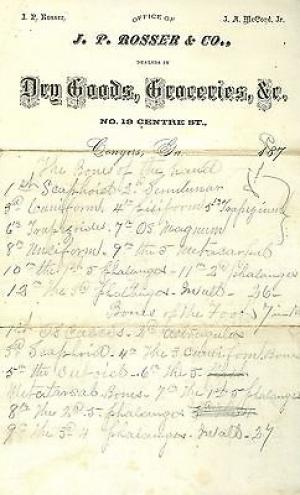 J. P. Rosser. OFFICE OF J. A. McCord, Jr.
J. P. ROSSER & CO.,
DEALERS IN
Dry Goods, Groceries, &c.
NO. 19 CENTRE ST.,
Conyers, Ga. 187
The Bones of the
1st Scaphoid 2nd Semilunar
3d Cuneiform 4th Pisiform 5th Trapezium
6th Trapezoides 7th Os Magnum
8th Unciform 9th the 5 Metacarpal
10th the 1st 5 phalanges 11th 2d phalanges
12 the 3d phalanges in all 26
Bones of the Foot
1st Os calcis 2d
3d Scaphoid 4th The 3 Cuneiform Bones
5th the Cuboid 6th the 5
Metatarsal Bones 7th the 1st 5 phalanges
8th the 2d 5 phalanges
9th the 3d 4 phalanges in all 27